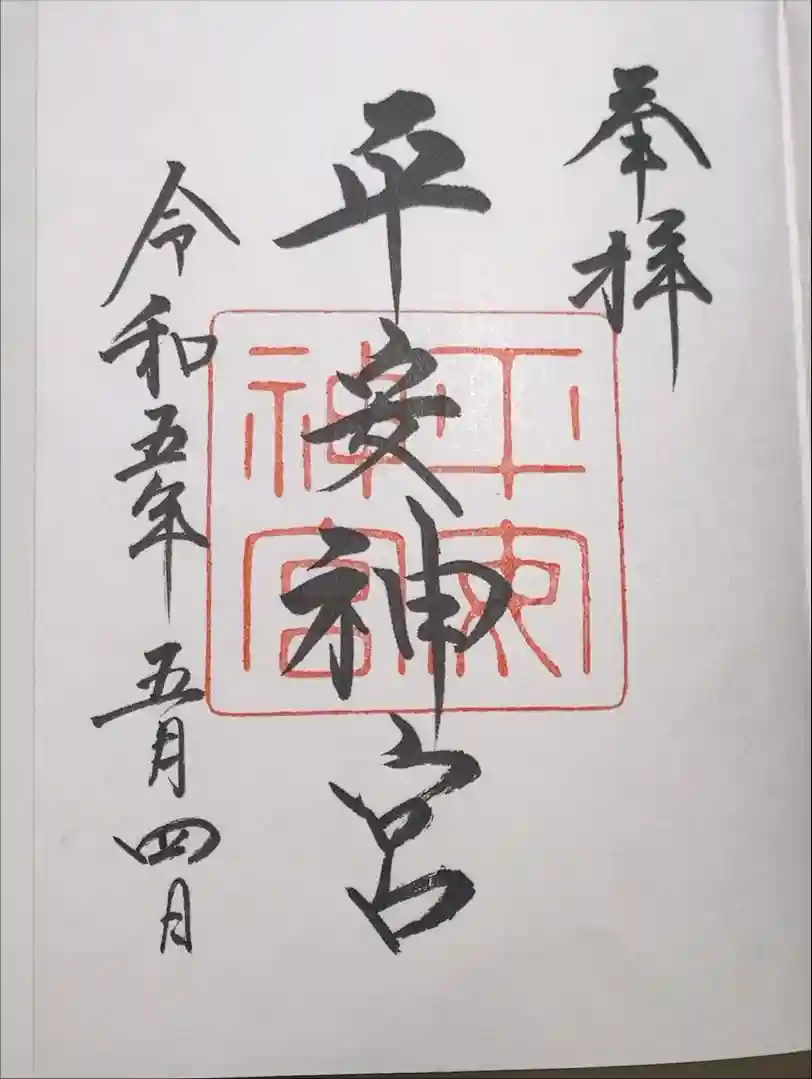 奉拝
平安神宮
令和五年五月四日
平安神宮